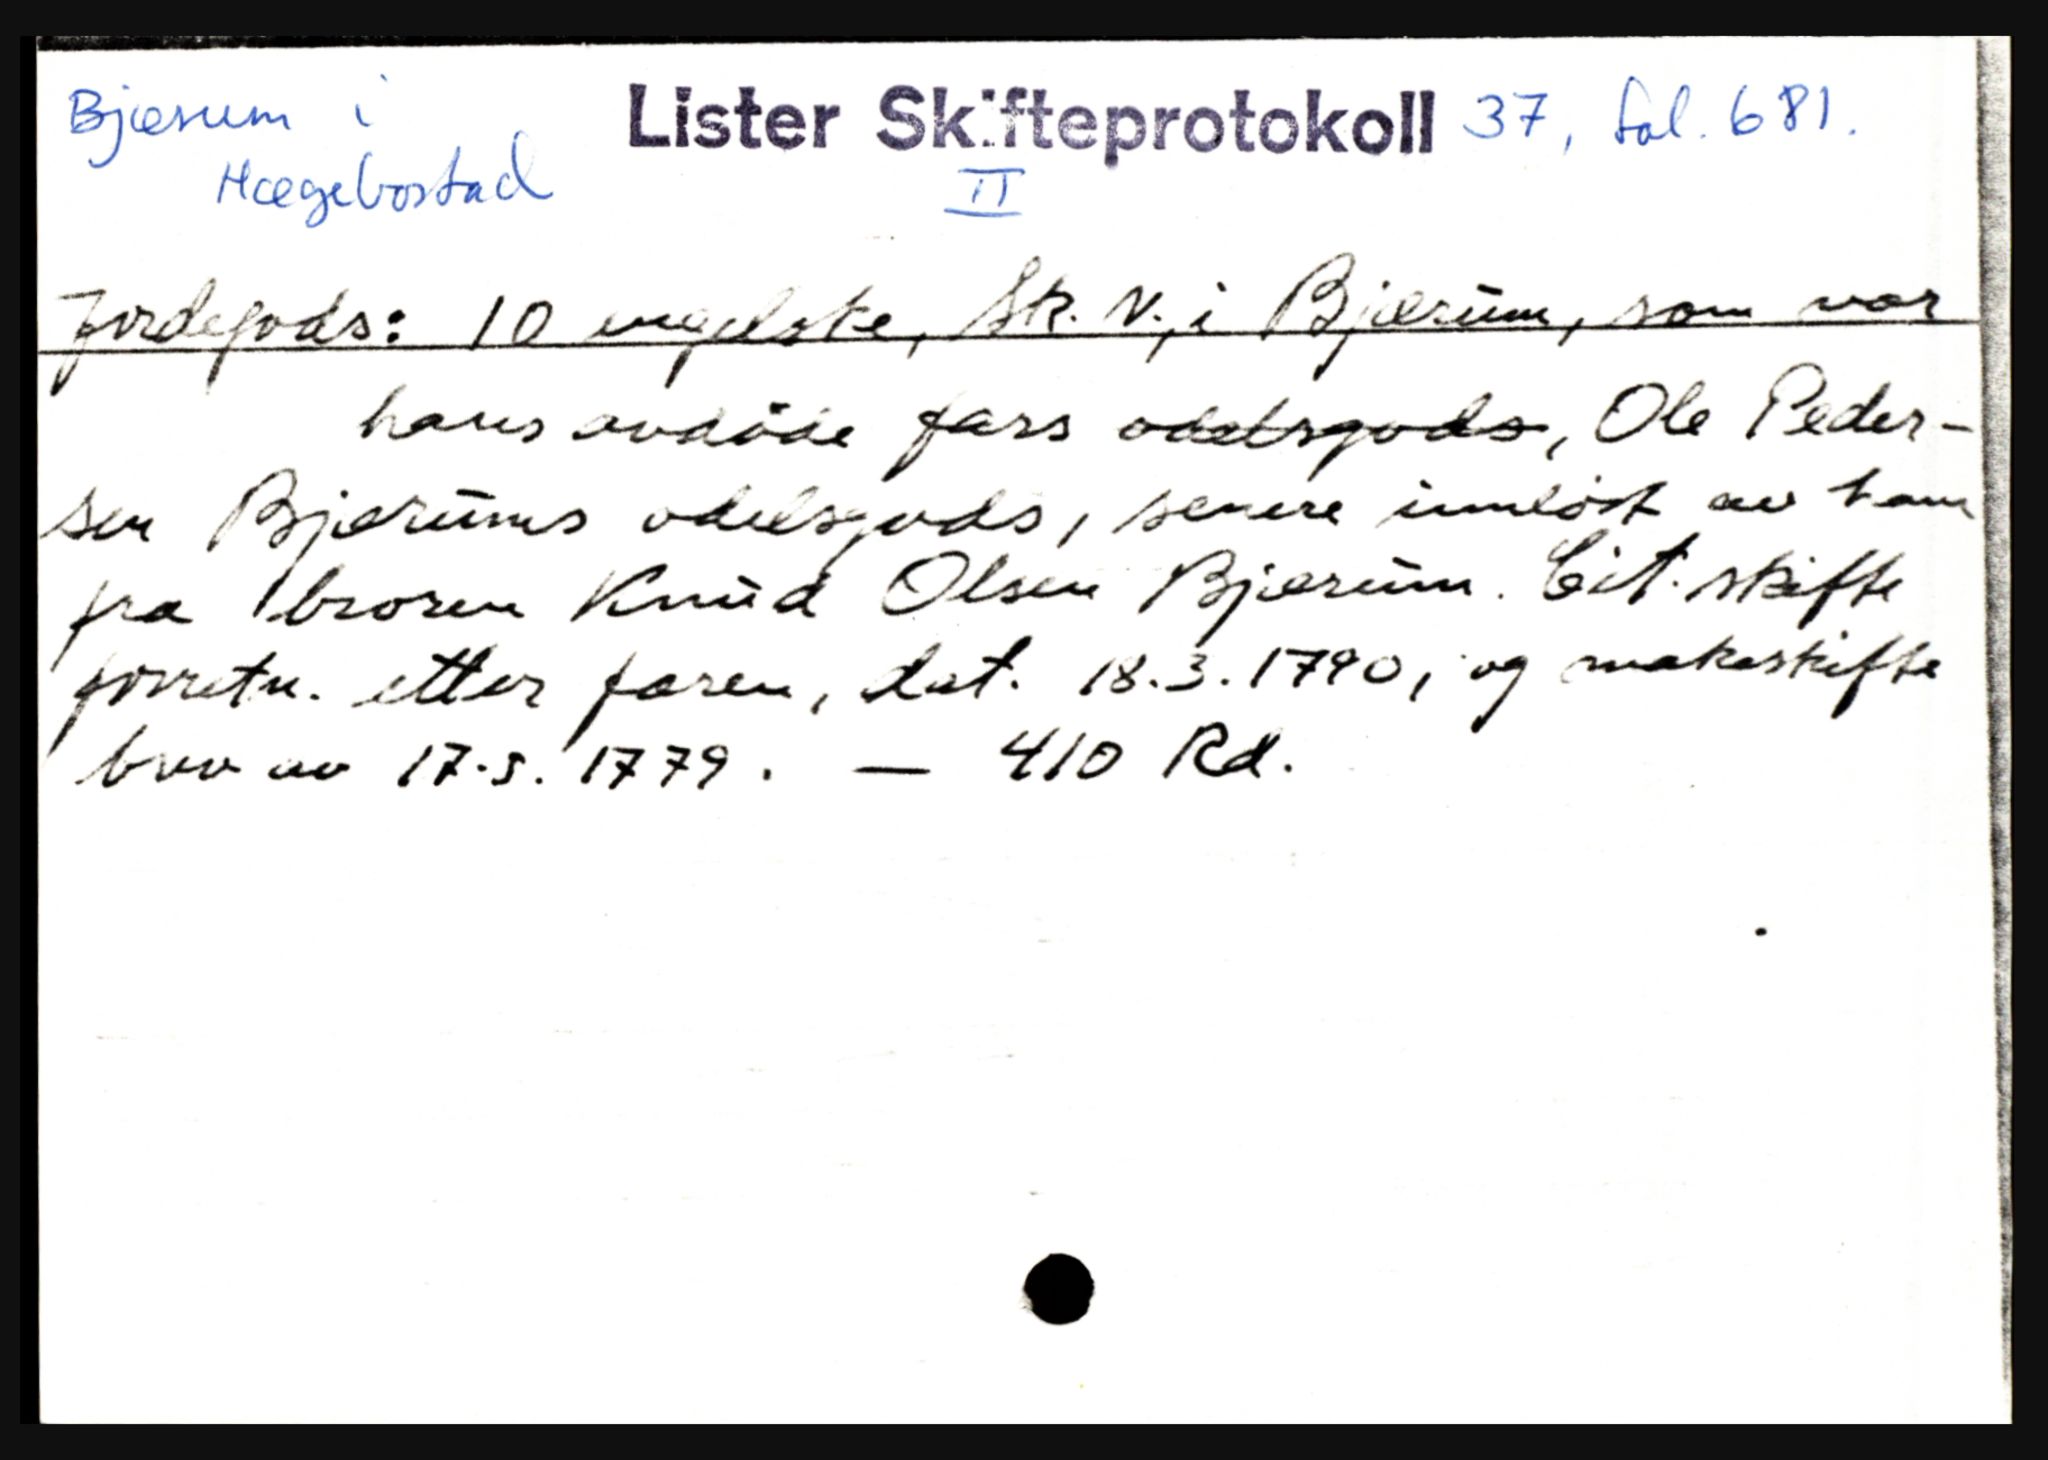 Bjærum i Lister Skifteprotokoll 37, fol. 681.
Hægebostad II
Jordegods: 10 engelske, Sk. V., i Bjærum, som var
hans avdøde fars odelsgods, Ole Peder-
sen Bjærums odelsgods, senere innløst av ham
fra broren Knud Olsen Bjærum. Cit. skifte
forretn. etter faren, dat. 18.3.1790, og makeskifte
brev av 17.5.1779. — 410 Rd.